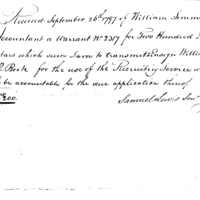 Received September 26th 1797 of William Simmons
Accountant a Warrant No 2317 for Two Hundred D
lars which sum I am to transmit Ensign Willi
P. Poole for the use of the Recruiting Service w
be accountable for the due application thereof
200.
Samuel Lewis Senr